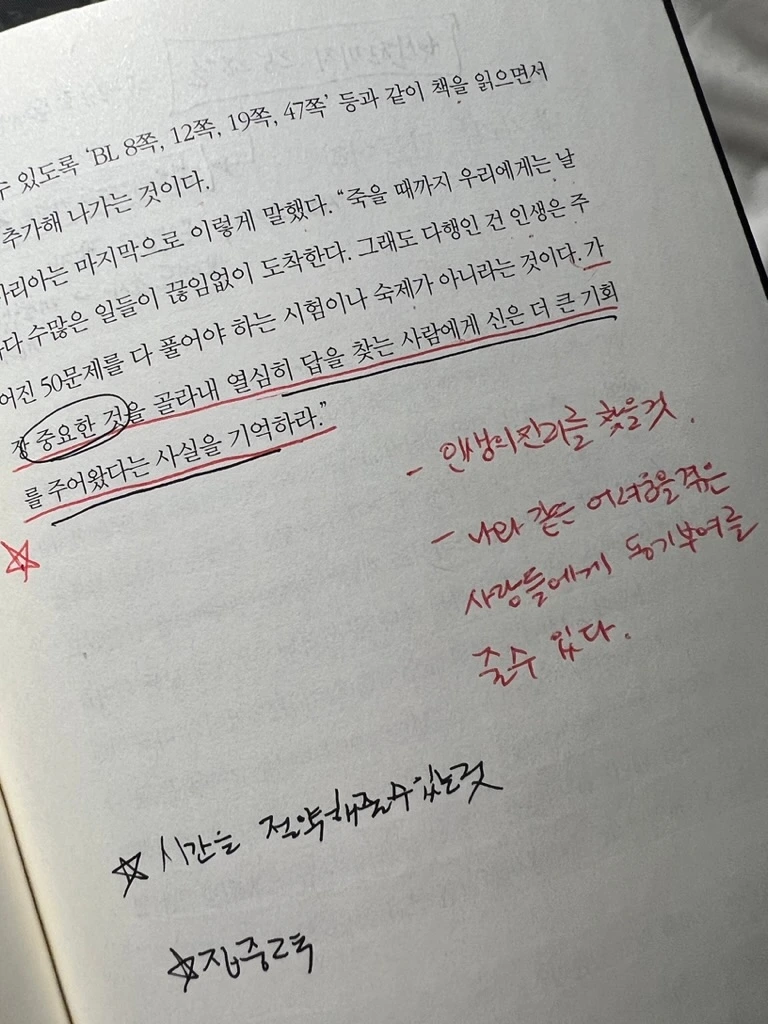 수 있도록 ‘BL 8쪽, 12쪽, 19쪽, 47쪽’ 등과 같이 책을 읽으면서
추가해 나가는 것이다.
마리아는 마지막으로 이렇게 말했다. “죽을 때까지 우리에게는 날
마다 수많은 일들이 끊임없이 도착한다. 그래도 다행인 건 인생은 주
어진 50문제를 다 풀어야 하는 시험이나 숙제가 아니라는 것이다. 가
장 중요한 것을 골라내 열심히 답을 찾는 사람에게 신은 더 큰 기회
를 주어왔다는 사실을 기억하라.”
- 인생의 진리를 찾을것.
- 나와 같은 어려움을 겪은
사람들에게 동기부여를
줄수 있다.
☆ 시간을 절약해줄수있는것
☆ 집중력